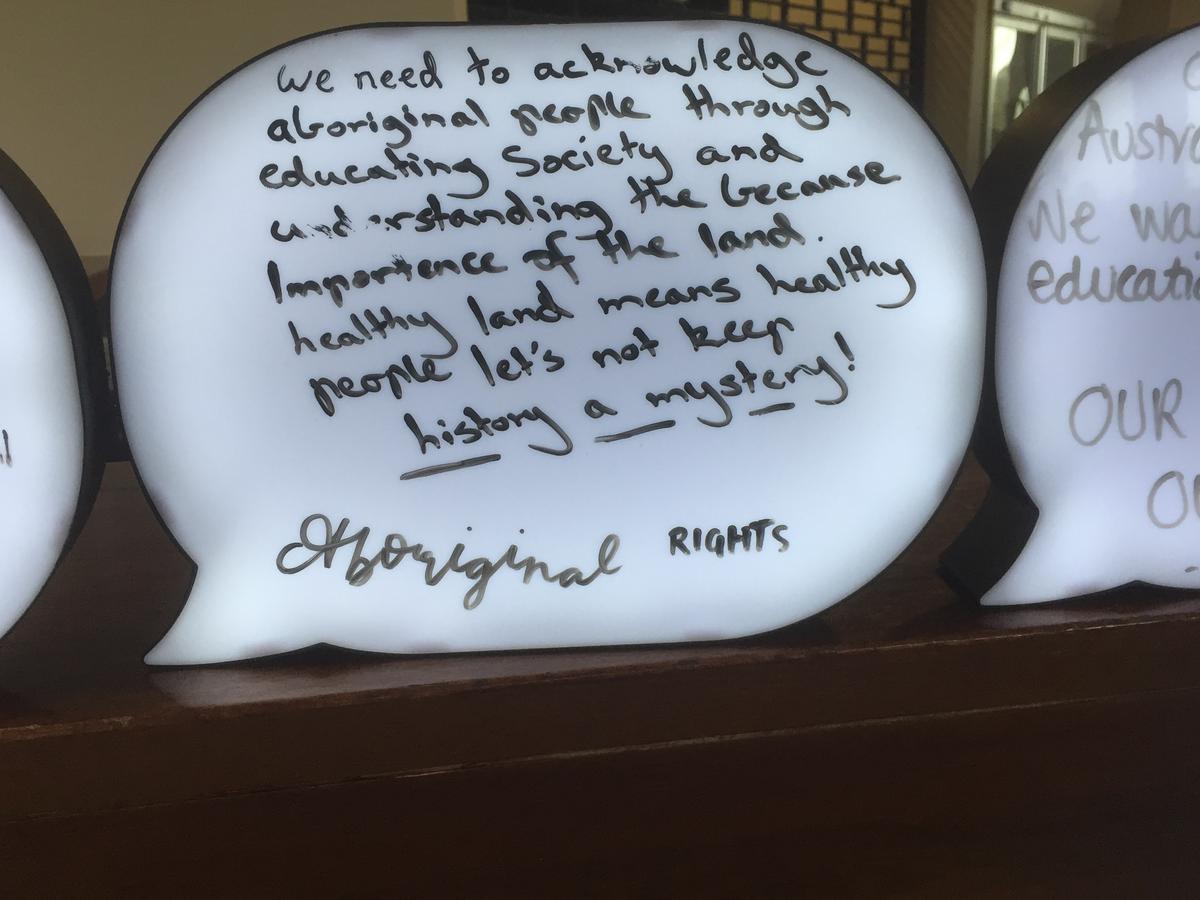 we need to acknowledge
aboriginal people through
educating Society and
understanding the because
Importence of the land.
healthy land means healthy
people let's not keep
history a mystery!
Aboriginal RIGHTS
We
OUR